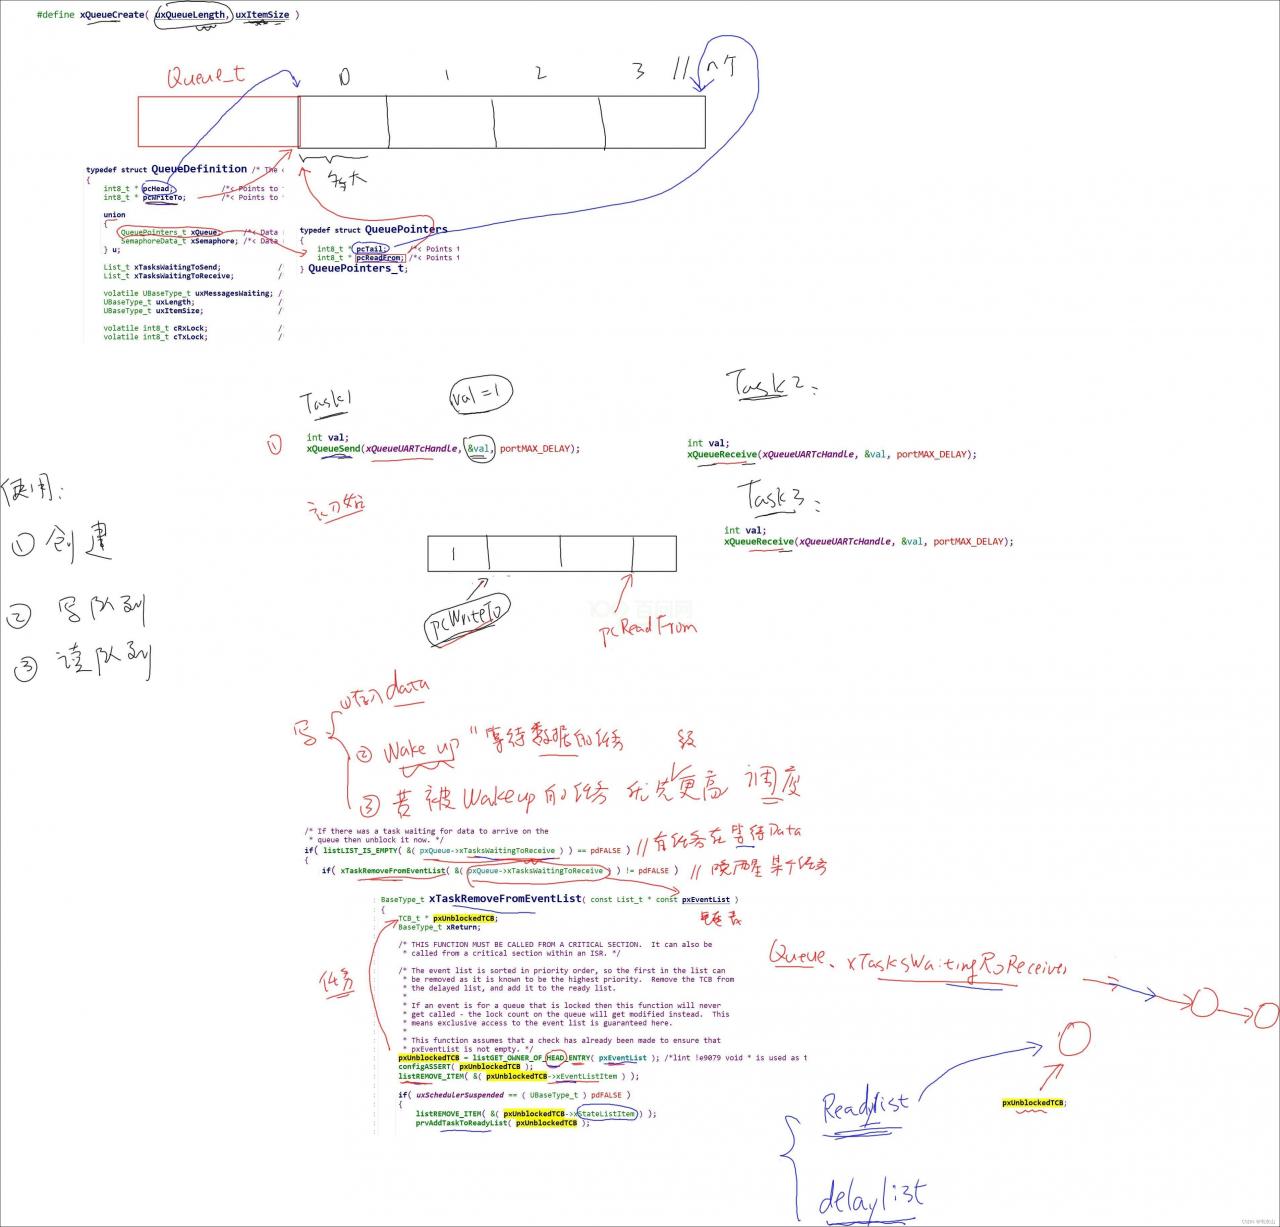 #define xQueueCreate( uxQueueLength, uxItemSize )
Queue_t 0 1 2 3 // n个
多大
typedef struct QueueDefinition /* The
{
int8_t * pcHead; /*< Points to
int8_t * pcWriteTo; /*< Points to
union
{
QueuePointers_t xQueue; /*< Data
SemaphoreData_t xSemaphore; /*< Data
} u;
List_t xTasksWaitingToSend; /
List_t xTasksWaitingToReceive; /
volatile UBaseType_t uxMessagesWaiting; /
UBaseType_t uxLength; /
UBaseType_t uxItemSize; /
volatile int8_t cRxLock; /
volatile int8_t cTxLock; /
typedef struct QueuePointers
{
int8_t * pcTail; /*< Points t
int8_t * pcReadFrom; /*< Points t
} QueuePointers_t;
Task1 val=1
① int val;
xQueueSend(xQueueUARTcHandle, &val, portMAX_DELAY);
Task2:
int val;
xQueueReceive(xQueueUARTcHandle, &val, portMAX_DELAY);
Task3:
int val;
xQueueReceive(xQueueUARTcHandle, &val, portMAX_DELAY);
使用:
① 创建
② 写队列
③ 读队列
初始
1
pcWriteTo
pcReadFrom
百问网
写
data
② Wake up "等待数据的任务
级
③ 若被Wakeup的任务 优先更高 调度
/* If there was a task waiting for data to arrive on the
* queue then unblock it now. */
if( listLIST_IS_EMPTY( &( pxQueue->xTasksWaitingToReceive ) ) == pdFALSE ) // 有任务在等待Data
{
if( xTaskRemoveFromEventList( &( pxQueue->xTasksWaitingToReceive ) ) != pdFALSE ) // 唤醒某个任务
BaseType_t xTaskRemoveFromEventList( const List_t * const pxEventList )
{
TCB_t * pxUnblockedTCB;
BaseType_t xReturn;
/* THIS FUNCTION MUST BE CALLED FROM A CRITICAL SECTION. It can also be
* called from a critical section within an ISR. */
/* The event list is sorted in priority order, so the first in the list can
* be removed as it is known to be the highest priority. Remove the TCB from
* the delayed list, and add it to the ready list.
*
* If an event is for a queue that is locked then this function will never
* get called - the lock count on the queue will get modified instead. This
* means exclusive access to the event list is guaranteed here.
*
* This function assumes that a check has already been made to ensure that
* pxEventList is not empty. */
pxUnblockedTCB = listGET_OWNER_OF_HEAD_ENTRY( pxEventList ); /*lint !e9079 void * is used as t
configASSERT( pxUnblockedTCB );
listREMOVE_ITEM( &( pxUnblockedTCB->xEventListItem ) );
if( uxSchedulerSuspended == ( UBaseType_t ) pdFALSE )
{
listREMOVE_ITEM( &( pxUnblockedTCB->xStateListItem ) );
prvAddTaskToReadyList( pxUnblockedTCB );
任务
Queue.
pxUnblockedTCB;
Readylist
delaylist